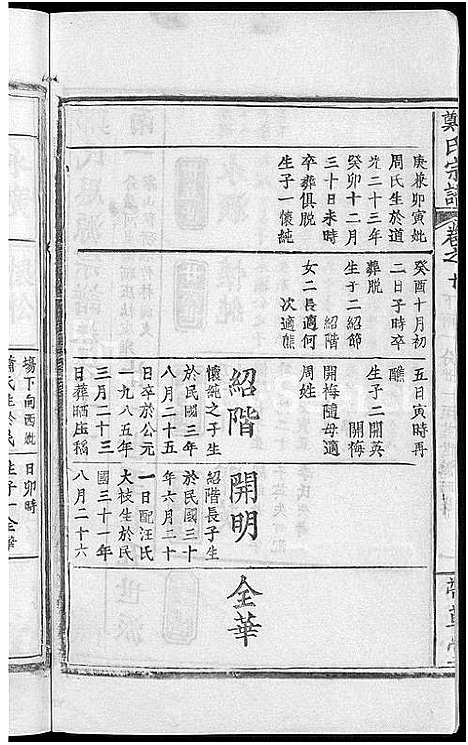 鄭氏宗譜
卷之十
庚兼卯寅妣
周氏生於道
光二十三年
癸卯十二月
三十日未時
卒葬俱脫
生子一懷純
癸酉十月初
二日子時卒
葬脫
生子二紹節
紹階
女二長適何
次適熊
五日寅時再
醮
生子二開英
開梅
開梅隨母適
周姓
紹階
懷純之子生
於民國三年
八月二十五
日卒於公元
一九八五年
三月二十三
日葬晒庒稱
開明
紹階長子生
於民國三十
年六月二十
一日配汪氏
大枝生於民
國三十一年
八月二十六
全華
塲下向西妣
日卯時
生子一全華